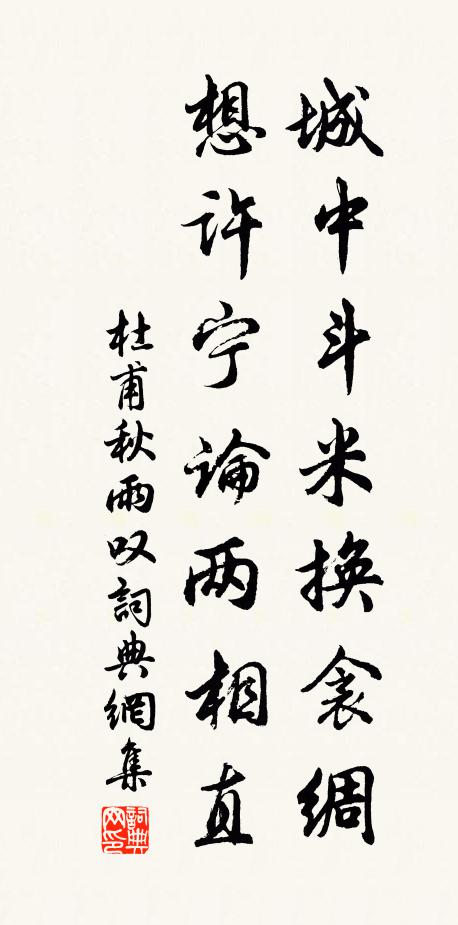 城中斗米换衾绸
想许宁论两相直
杜甫秋雨叹詞典網集
詞典网印